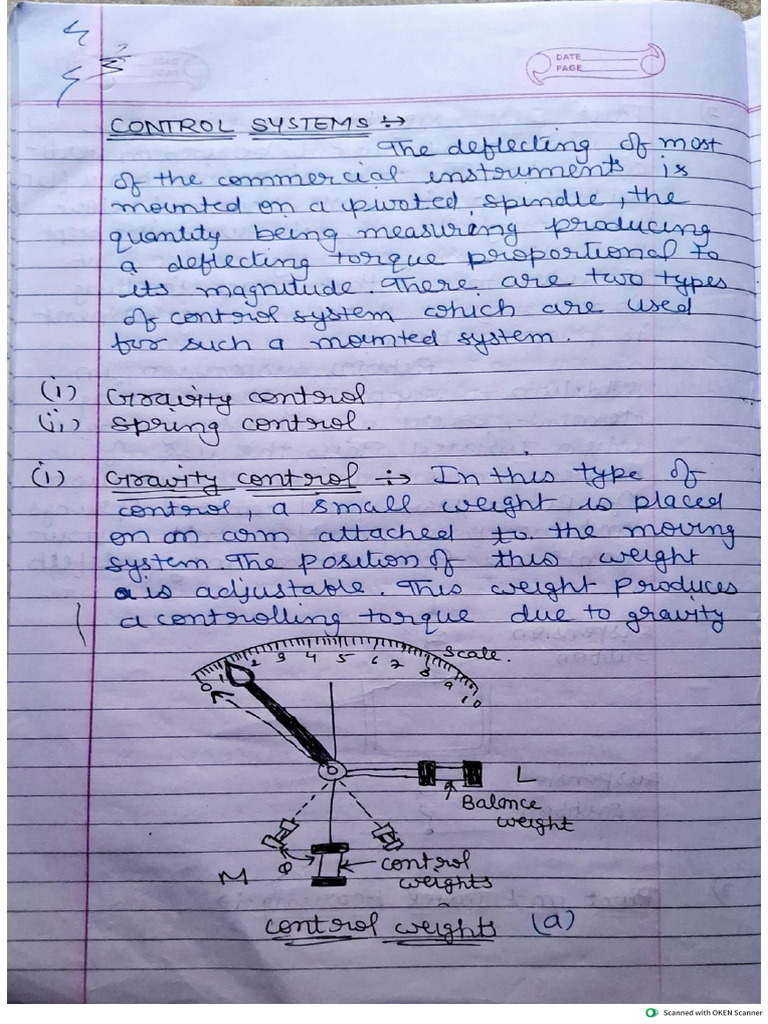 DATE
PAGE
CONTROL SYSTEMS :→
The deflecting of most
of the commercial instruments is
mounted on a pivoted spindle, the
quantity being measuring producing
a deflecting torque proportional to
its magnitude. There are two types
of control system which are used
for such a mounted system.
(i) Gravity control
(ii) Spring control.
(i) Gravity control :→ In this type of
control, a small weight is placed
on an arm attached to the moving
system. The position of this weight
is adjustable. This weight produces
a controlling torque due to gravity
0 1 2 3 4 5 6 7 8 9 10 Scale.
L
Balance
weight
M θ control
weights
control weights (a)
Scanned with OKEN Scanner